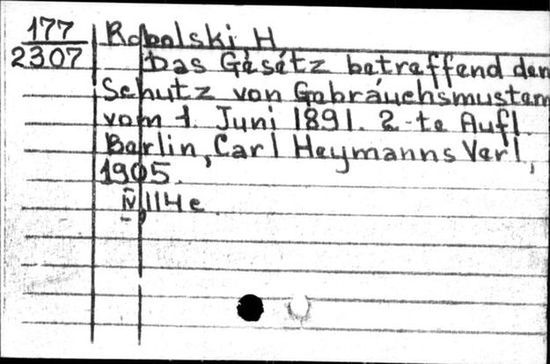 177 Robolski H.
2307 Das Gesetz betreffend den
Schutz von Gebrauchsmustern
vom 1. Juni 1891. 2-te Aufl.
Berlin, Carl Heymanns Verl.,
1905.
IV 114 e